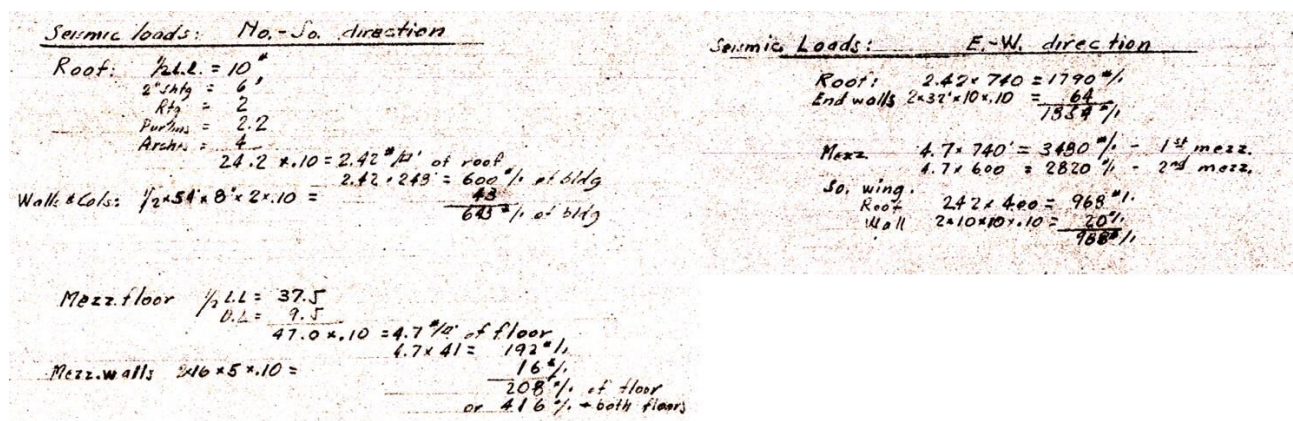 Seismic loads: No.-So. direction
Roof: 1/2 L.L. = 10 #
2" shtg = 6 '
Rfg = 2
Purlins = 2.2
Arches = 4
24.2 x .10 = 2.42 #/□' of roof
2.42 x 248' = 600 #/' of bldg
Walls & Cols: 1/2 x 54' x 8' x 2 x .10 = 43
643 #/' of bldg
Mezz. floor 1/2 L.L = 37.5
D.L = 9.5
47.0 x .10 = 4.7 #/□' of floor
4.7 x 41 = 192 #/'
Mezz. walls 2x16 x 5 x .10 = 16 #/'
208 #/' of floor
or 416 #/' + both floors
Seismic Loads: E.-W. direction
Roof: 2.42 x 740 = 1790 #/'
End walls 2x32' x 10 x .10 = 64
1854 #/'
Mezz. 4.7 x 740' = 3480 #/' - 1st mezz.
4.7 x 600 = 2820 #/' - 2nd mezz.
So. wing.
Roof 242 x 400 = 968 #/'
Wall 2 x 10 x 10 x .10 = 20 #/'
988 #/'